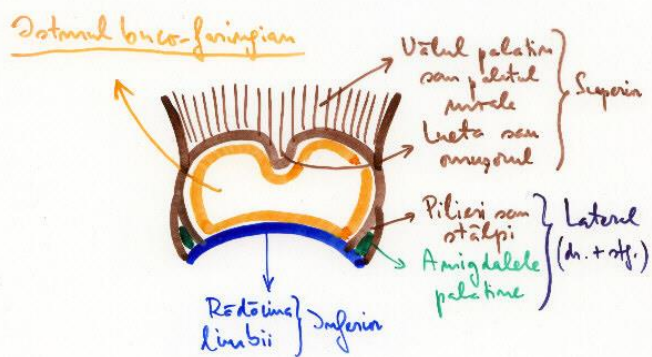 Istmul buco-faringian
Vălul palatin
sau palatul
moale
Lueta sau
omușorul
Superior
Pilieri sau
stâlpi
Amigdalele
palatine
Lateral
(dr. + stg.)
Rădăcina
limbii
Inferior